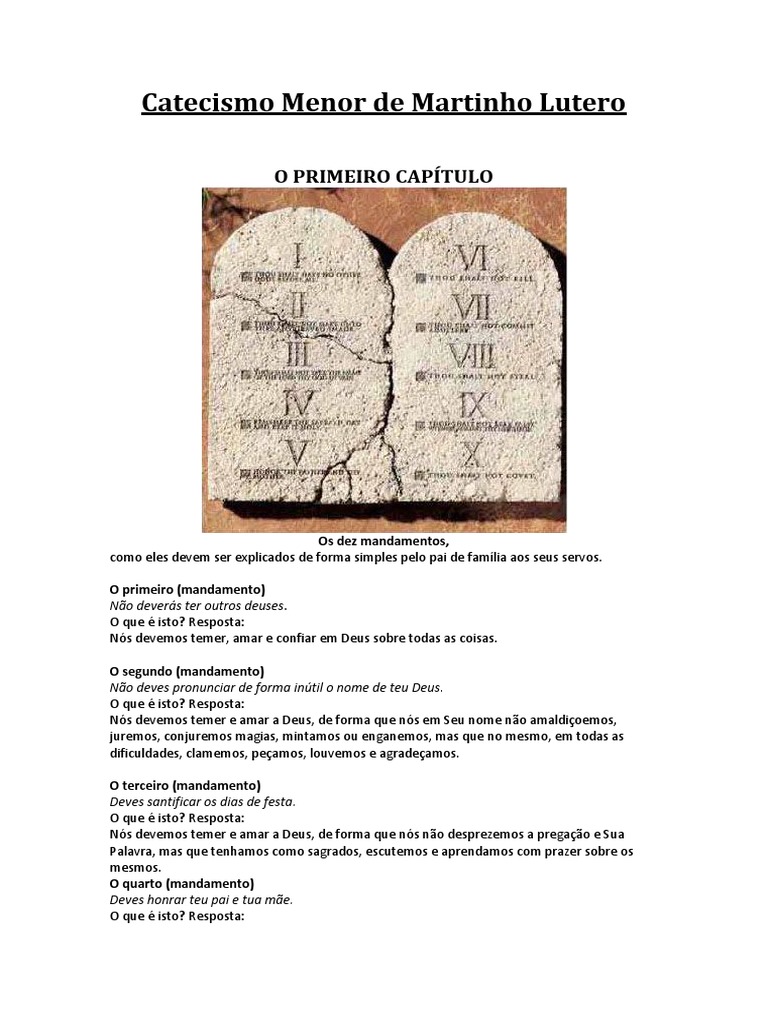 Catecismo Menor de Martinho Lutero
O PRIMEIRO CAPÍTULO
I
THOU SHALT HAVE NO OTHER
GODS BEFORE ME.
II
THOU SHALT NOT MAKE UNTO
THEE ANY GRAVEN IMAGE.
III
THOU SHALT NOT TAKE THE NAME
OF THE LORD THY GOD IN VAIN
IV
REMEMBER THE SABBATH DAY
AND KEEP IT HOLY.
V
HONOR THY FATHER AND THY
MOTHER.
VI
THOU SHALT NOT KILL.
VII
THOU SHALT NOT COMMIT
VIII
THOU SHALT NOT STEAL.
IX
THOU SHALT NOT BEAR FALSE
X
THOU SHALT NOT COVET.
Os dez mandamentos,
como eles devem ser explicados de forma simples pelo pai de família aos seus servos.
O primeiro (mandamento)
Não deverás ter outros deuses.
O que é isto? Resposta:
Nós devemos temer, amar e confiar em Deus sobre todas as coisas.
O segundo (mandamento)
Não deves pronunciar de forma inútil o nome de teu Deus.
O que é isto? Resposta:
Nós devemos temer e amar a Deus, de forma que nós em Seu nome não amaldiçoemos,
juremos, conjuremos magias, mintamos ou enganemos, mas que no mesmo, em todas as
dificuldades, clamemos, peçamos, louvemos e agradeçamos.
O terceiro (mandamento)
Deves santificar os dias de festa.
O que é isto? Resposta:
Nós devemos temer e amar a Deus, de forma que nós não desprezemos a pregação e Sua
Palavra, mas que tenhamos como sagrados, escutemos e aprendamos com prazer sobre os
mesmos.
O quarto (mandamento)
Deves honrar teu pai e tua mãe.
O que é isto? Resposta: